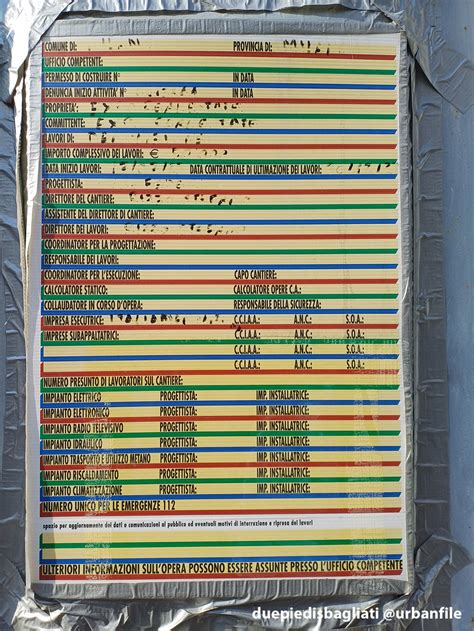 COMUNE DI: PROVINCIA DI:
UFFICIO COMPETENTE:
PERMESSO DI COSTRUIRE N° IN DATA
DENUNCIA INIZIO ATTIVITA' N° IN DATA
PROPRIETA':
COMMITTENTE:
LAVORI DI:
IMPORTO COMPLESSIVO DEI LAVORI: €
DATA INIZIO LAVORI: DATA CONTRATTUALE DI ULTIMAZIONE DEI LAVORI:
PROGETTISTA:
DIRETTORE DEL CANTIERE:
ASSISTENTE DEL DIRETTORE DI CANTIERE:
DIRETTORE DEI LAVORI:
COORDINATORE PER LA PROGETTAZIONE:
RESPONSABILE DEI LAVORI:
COORDINATORE PER L'ESECUZIONE: CAPO CANTIERE:
CALCOLATORE STATICO: CALCOLATORE OPERE C.A.:
COLLAUDATORE IN CORSO D'OPERA: RESPONSABILE DELLA SICUREZZA:
IMPRESA ESECUTRICE: C.C.I.A.A.: A.N.C.: S.O.A.:
IMPRESE SUBAPPALTATRICI: C.C.I.A.A.: A.N.C.: S.O.A.:
C.C.I.A.A.: A.N.C.: S.O.A.:
C.C.I.A.A.: A.N.C.: S.O.A.:
NUMERO PRESUNTO DI LAVORATORI SUL CANTIERE:
IMPIANTO ELETTRICO PROGETTISTA: IMP. INSTALLATRICE:
IMPIANTO ELETTRONICO PROGETTISTA: IMP. INSTALLATRICE:
IMPIANTO RADIO TELEVISIVO PROGETTISTA: IMP. INSTALLATRICE:
IMPIANTO IDRAULICO PROGETTISTA: IMP. INSTALLATRICE:
IMPIANTO TRASPORTO E UTILIZZO METANO PROGETTISTA: IMP. INSTALLATRICE:
IMPIANTO RISCALDAMENTO PROGETTISTA: IMP. INSTALLATRICE:
IMPIANTO CLIMATIZZAZIONE PROGETTISTA: IMP. INSTALLATRICE:
NUMERO UNICO PER LE EMERGENZE 112
spazio per aggiornamento dei dati o comunicazioni al pubblico ad eventuali motivi di interruzione e ripresa dei lavori
ULTERIORI INFORMAZIONI SULL'OPERA POSSONO ESSERE ASSUNTE PRESSO L'UFFICIO COMPETENTE
duepiedisbagliati @urbanfile